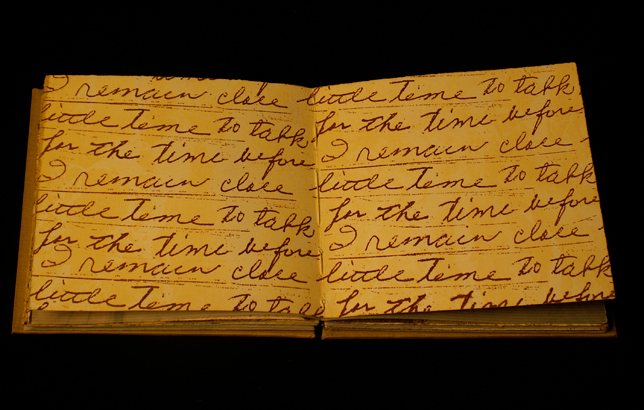 I remain close
little time to talk
for the time before
I remain close
little time to talk
for the time before
I remain close
little time to talk
little time to talk
for the time before
I remain close
little time to talk
for the time before
I remain close
little time to talk
for the time before